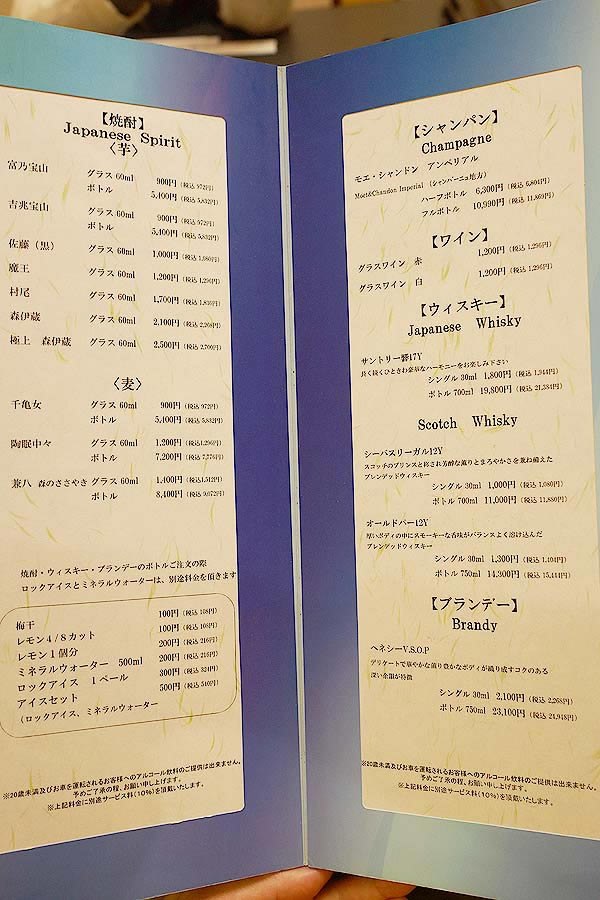 【焼酎】
Japanese Spirit
〈芋〉
富乃宝山 グラス 60ml 900円 (税込 972円)
ボトル 5,400円 (税込 5,832円)
吉兆宝山 グラス 60ml 900円 (税込 972円)
ボトル 5,400円 (税込 5,832円)
佐藤（黒） グラス 60ml 1,000円 (税込 1,080円)
魔王 グラス 60ml 1,200円 (税込 1,296円)
村尾 グラス 60ml 1,700円 (税込 1,836円)
森伊蔵 グラス 60ml 2,100円 (税込 2,268円)
極上 森伊蔵 グラス 60ml 2,500円 (税込 2,700円)
〈麦〉
千亀女 グラス 60ml 900円 (税込 972円)
ボトル 5,400円 (税込 5,832円)
陶眠中々 グラス 60ml 1,200円 (税込1,296円)
ボトル 7,200円 (税込 7,776円)
兼八 森のささやき グラス 60ml 1,400円 (税込1,512円)
ボトル 8,400円 (税込 9,072円)
焼酎・ウィスキー・ブランデーのボトルご注文の際
ロックアイスとミネラルウォーターは、別途料金を頂きます
梅干 100円 (税込 108円)
レモン４/８カット 100円 (税込 108円)
レモン１個分 200円 (税込 216円)
ミネラルウォーター 500ml 200円 (税込 216円)
ロックアイス １ペール 300円 (税込 324円)
アイスセット 500円 (税込 540円)
(ロックアイス、ミネラルウォーター
※20歳未満及びお車を運転されるお客様へのアルコール飲料のご提供は出来ません。
予めご了承の程、お願い申し上げます。
※上記料金に別途サービス料(10%)を頂戴いたします。
【シャンパン】
Champagne
モエ・シャンドン アンペリアル
Moet&Chandon Imperial （シャンパーニュ地方）
ハーフボトル 6,300円 (税込 6,804円)
フルボトル 10,990円 (税込 11,869円)
【ワイン】
グラスワイン 赤 1,200円 (税込 1,296円)
グラスワイン 白 1,200円 (税込 1,296円)
【ウィスキー】
Japanese Whisky
サントリー響17Y
長く続くひときわ豪華なハーモニーをお楽しみ下さい
シングル 30ml 1,800円 (税込 1,944円)
ボトル 700ml 19,800円 (税込 21,384円)
Scotch Whisky
シーバスリーガル12Y
スコッチのプリンスと称され芳醇な薫りとまろやかさを兼ね備えた
ブレンデッドウィスキー
シングル 30ml 1,000円 (税込 1,080円)
ボトル 700ml 11,000円 (税込 11,880円)
オールドパー12Y
厚いボディの中にスモーキーな香味がバランスよく溶け込んだ
ブレンデッドウィスキー
シングル 30ml 1,300円 (税込 1,404円)
ボトル 750ml 14,300円 (税込 15,444円)
【ブランデー】
Brandy
ヘネシーV.S.O.P
デリケートで華やかな薫り豊かなボディが織り成すコクのある
深い余韻が特徴
シングル 30ml 2,100円 (税込 2,268円)
ボトル 750ml 23,100円 (税込 24,948円)
※20歳未満及びお車を運転されるお客様へのアルコール飲料のご提供は出来ません。
予めご了承の程、お願い申し上げます。
※上記料金に別途サービス料(10%)を頂戴いたします。